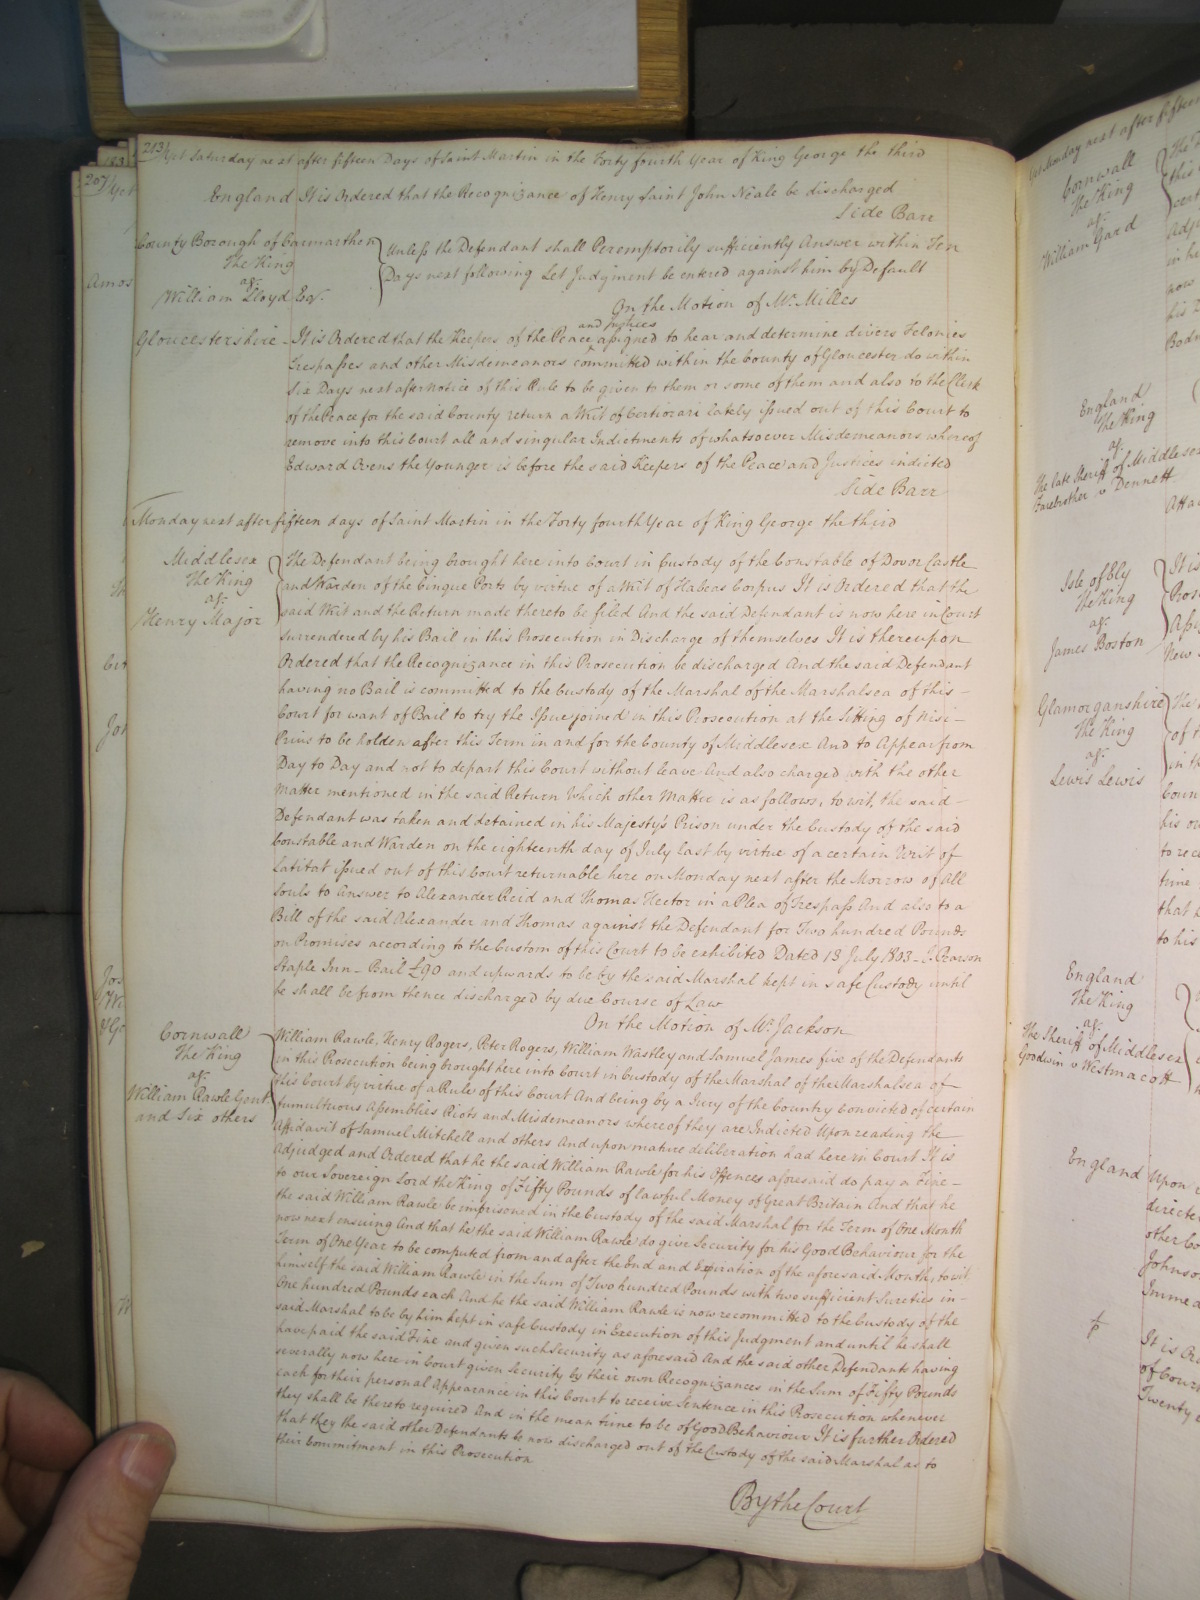 213 Yet Saturday next after fifteen Days of Saint Martin in the Forty fourth Year of King George the third
England It is Ordered that the Recognizance of Henry Saint John Neale be discharged
Side Barr
County Borough of Carmarthen
The King
agt.
William Lloyd Esqr.
Unless the Defendant shall Peremptorily sufficiently Answer within Ten
Days next following Let Judgment be entered against him by Default
On the Motion of Mr. Milles
Gloucestershire - It is Ordered that the Keepers of the Peace and Justices assigned to hear and determine divers Felonies
Trespasses and other Misdemeanors committed within the County of Gloucester do within
Six Days next after notice of this Rule to be given to them or some of them and also to the Clerk
of the Peace for the said County return a Writ of Certiorari lately issued out of this Court to
remove into this Court all and singular Indictments of whatsoever Misdemeanors whereof
Edward Ovens the Younger is before the said Keepers of the Peace and Justices indicted
Side Barr
Monday next after fifteen days of Saint Martin in the Forty fourth Year of King George the third
Middlesex
The King
agt.
Henry Major
The Defendant being brought here into Court in Custody of the Constable of Dovor Castle
and Warden of the Cinque Ports by virtue of a Writ of Habeas Corpus It is Ordered that the
said Writ and the Return made thereto be filed And the said Defendant is now here in Court
surrendered by his Bail in this Prosecution in Discharge of themselves It is thereupon
Ordered that the Recognizance in this Prosecution be discharged And the said Defendant
having no Bail is committed to the Custody of the Marshal of the Marshalsea of this -
Court for want of Bail to try the Issue joined in this Prosecution at the Sitting of Nisi -
Prius to be holden after this Term in and for the County of Middlesex And to Appear from
Day to Day and not to depart this Court without leave And also charged with the other
Matter mentioned in the said Return Which other Matter is as follows, to wit, the said -
Defendant was taken and detained in his Majesty's Prison under the Custody of the said
Constable and Warden on the eighteenth day of July last by virtue of a certain Writ of
Latitat issued out of this Court returnable here on Monday next after the Morrow of All
Souls to Answer to Alexander Reid and Thomas Hector in a Plea of Trespass And also to a
Bill of the said Alexander and Thomas against the Defendant for Two hundred Pounds
on Promises according to the Custom of this Court to be exhibited Dated 13 July 1803 - J. Pearson
Staple Inn - Bail £90 and upwards to be by the said Marshal kept in safe Custody until
he shall be from thence discharged by due Course of Law
On the Motion of Mr. Jackson
Cornwall
The King
agt.
William Rawle Gent
and Six others
William Rawle, Henry Rogers, Peter Rogers, William Wastley and Samuel James five of the Defendants
in this Prosecution being brought here into Court in Custody of the Marshal of the Marshalsea of -
this Court by virtue of a Rule of this Court And being by a Jury of the Country Convicted of certain
tumultuous Assemblies Riots and Misdemeanors whereof they are Indicted Upon reading the
Affidavit of Samuel Mitchell and others And upon mature deliberation had here in Court It is
Adjudged and Ordered that he the said William Rawle for his Offences aforesaid do pay a Fine -
to our Sovereign Lord the King of Fifty Pounds of lawful Money of Great Britain And that he
the said William Rawle be imprisoned in the Custody of the said Marshal for the Term of One Month
now next ensuing And that he the said William Rawle do give Security for his Good Behaviour for the
Term of One Year to be computed from and after the End and Expiration of the aforesaid Month, to wit,
himself the said William Rawle in the Sum of Two hundred Pounds with two sufficient Sureties in -
One hundred Pounds each And he the said William Rawle is now recommitted to the Custody of the
said Marshal to be by him kept in safe Custody in Execution of this Judgment and until he shall
have paid the said Fine and given such Security as aforesaid And the said other Defendants having
severally now here in Court given Security by their own Recognizances in the Sum of Fifty Pounds
each for their personal Appearance in this Court to receive Sentence in this Prosecution whenever
they shall be thereto required And in the mean time to be of Good Behaviour It is further Ordered
that they the said other Defendants be now discharged out of the Custody of the said Marshal as to
their Commitment in this Prosecution
By the Court
207
Amos
Yet Monday next after fifteen
Cornwall
The King
agt.
William Gard
England
The King
agt.
The late Sheriff of Middlesex
Fairbrother v Dennett
Isle of Ely
The King
agt.
James Boston
Glamorganshire
The King
agt.
Lewis Lewis
England
The King
agt.
The Sheriff of Middlesex
Goodwin v Westmacott
England Upon
directe
other Co
Johnson
Immed
It is Or
of Court
Twenty